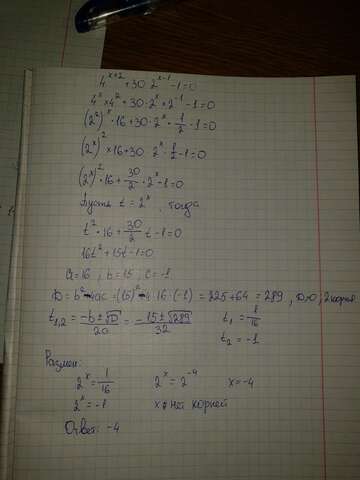 4^(x+2) + 30 · 2^(x-1) - 1 = 0
4^x × 4^2 + 30 · 2^x × 2^(-1) - 1 = 0
(2^2)^x · 16 + 30 · 2^x · 1/2 - 1 = 0
(2^x)^2 × 16 + 30 2^x · 1/2 - 1 = 0
(2^x)^2 · 16 + 30/2 · 2^x - 1 = 0
Пусть t = 2^x, тогда
t^2 · 16 + 30/2 t - 1 = 0
16t^2 + 15t - 1 = 0
a = 16 ; b = 15 ; c = -1
D = b^2 - 4ac = (15)^2 - 4 · 16 · (-1) = 225 + 64 = 289 , D>0, 2 корня
t1,2 = (-b ± √D)/2a = (-15 ± √289)/32 t1 = 1/16
t2 = -1
2^x = 1/16 2^x = 2^(-4) x = -4
2^x = -1 нет корней
Ответ: -4